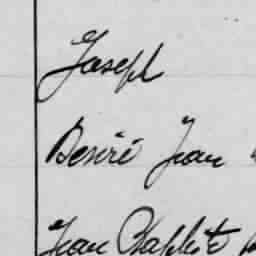 Joseph
Desiré Jean
Jean Baptiste